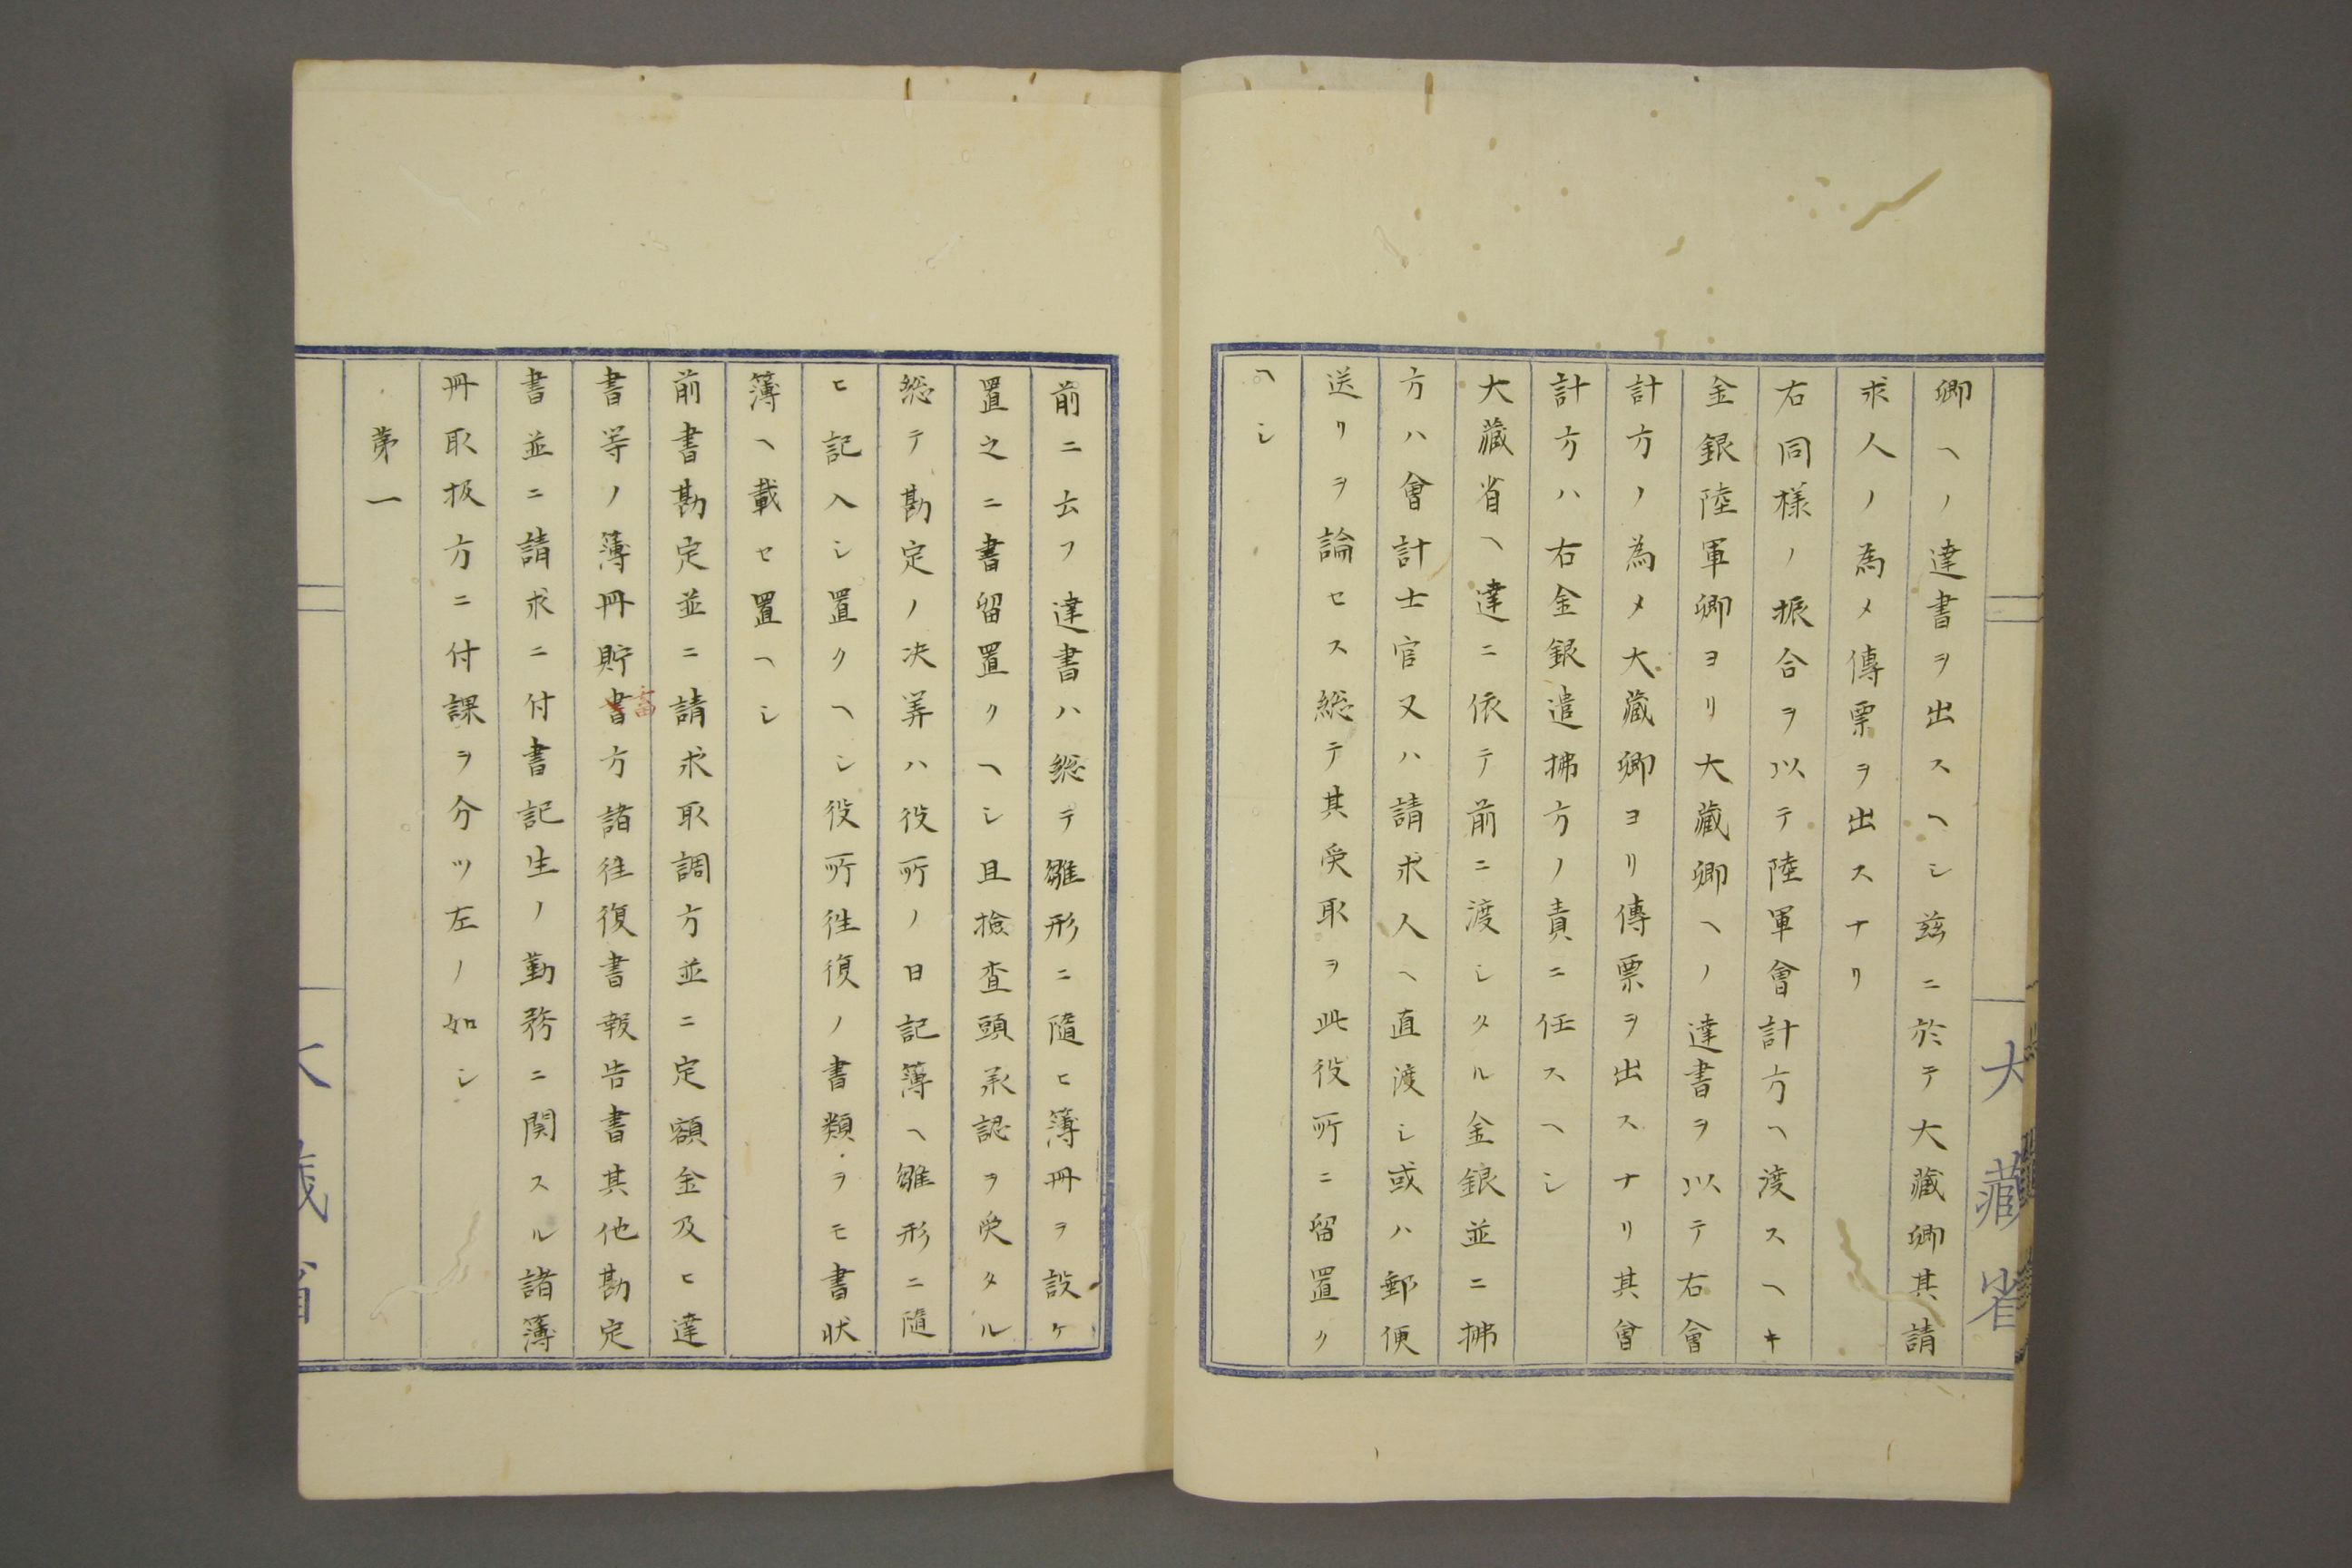 大藏省
卿ヘノ達書ヲ出スヘシ茲ニ於テ大藏卿其請
求人ノ為メ傳票ヲ出スナリ
右同様ノ振合ヲ以テ陸軍會計方ヘ渡スヘキ
金銀陸軍卿ヨリ大藏卿ヘノ達書ヲ以テ右會
計方ノ為メ大藏卿ヨリ傳票ヲ出スナリ其會
計方ハ右金銀遣拂方ノ責ニ任スヘシ
大藏省ヘ達ニ依テ前ニ渡シタル金銀並ニ拂
方ハ會計士官又ハ請求人ヘ直渡シ或ハ郵便
送リヲ論セス総テ其受取ヲ此役所ニ留置ク
ヘシ
前ニ云フ達書ハ総テ雛形ニ隨ヒ簿冊ヲ設ケ
置之ニ書留置クヘシ且撿査頭承認ヲ受タル
総テ勘定ノ决筭ハ役所ノ日記簿ヘ雛形ニ隨
ヒ記入シ置クヘシ役所徃復ノ書類ヲモ書状
簿ヘ載セ置ヘシ
前書勘定並ニ請求取調方並ニ定額金及ヒ達
書等ノ簿冊貯書方諸徃復書報告書其他勘定
蓄
書並ニ請求ニ付書記生ノ勤務ニ関スル諸簿
冊取扱方ニ付課ヲ分ツ左ノ如シ
第一
大藏省